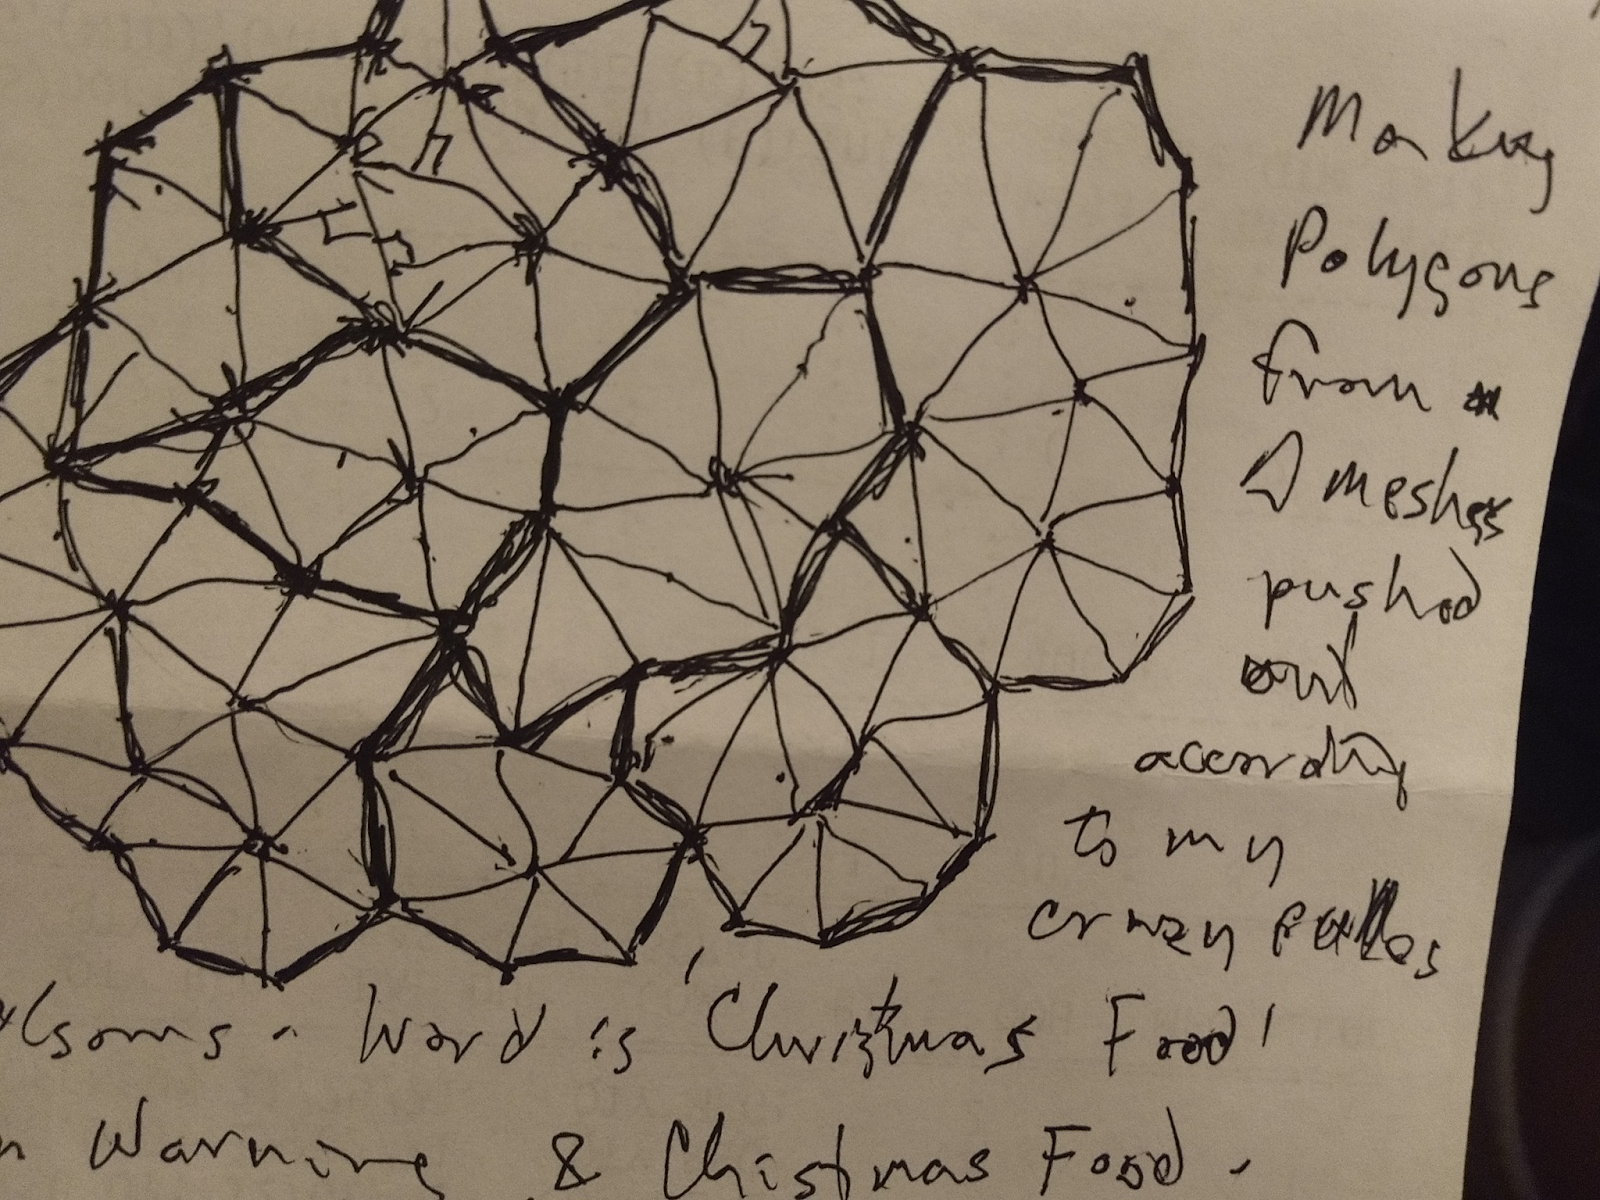 Monkey
Polygons
from
meshes
pushed
out
according
to my
crazy rules
- Word is 'Christmas Food'
Warning & Christmas Food -